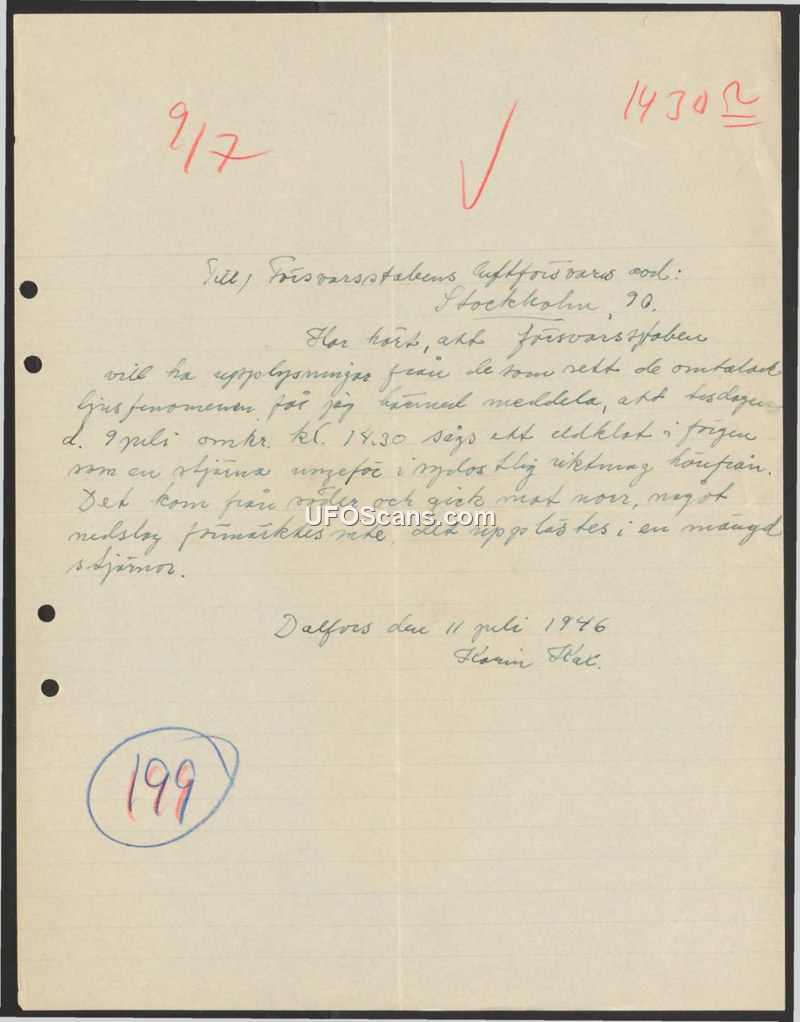 9/7
1430
Till, Försvarsstabens luftförsvars avd:
Stockholm, 90.
Har hört, att försvarsstaben
vill ha upplysningar från de som sett de omtalade
ljusfenomenen får jag härmed meddela, att tisdagen
d. 9 juli omkr. kl. 14.30 sågs ett eldklot i färgen
som en stjärna ungefär i sydostlig riktning härifrån.
Det kom från söder och gick mot norr, något
nedslag förmärktes inte, det upplöstes i en mängd
stjärnor.
UFOScans.com
Dalfors den 11 juli 1946
Karin
199